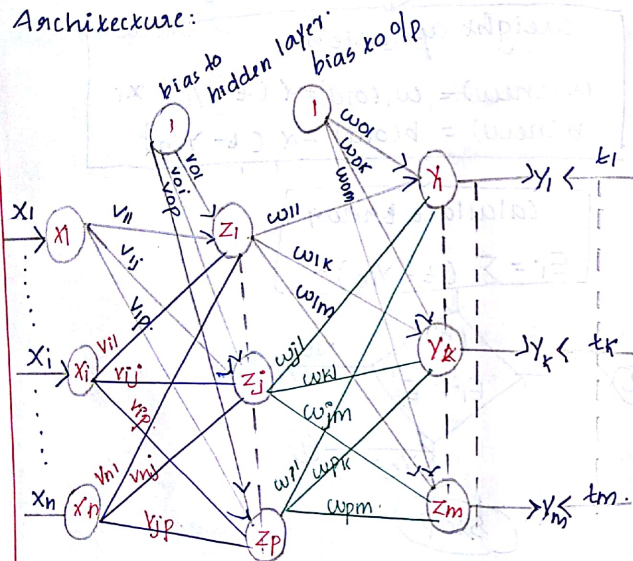 Architecture:
bias to
hidden layer.
bias to o/p
1
1
w01
w0k
w0m
v01
v0j
v0p
x1
X1
v11
v1j
v1p.
Z1
w11
w1k
w1m
Y1
y1
t1
xi
Xi
vi1
vij
vip
Zj
wj1
wk1
wjm
Yk
yk
tk
xn
Xn
vn1
vnj
vjp
Zp
wp1
wpk
wpm.
Zm
ym
tm.